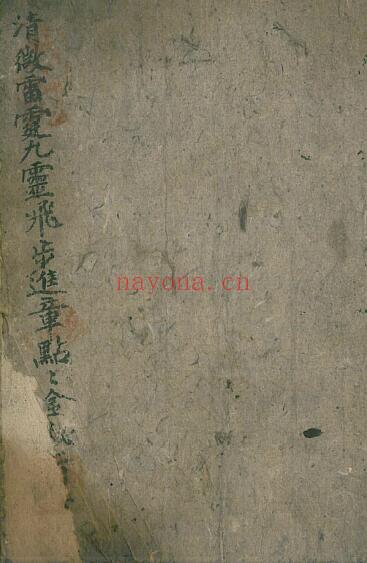 清微雷霆九靈飛步進章點〻金
nayona.cn